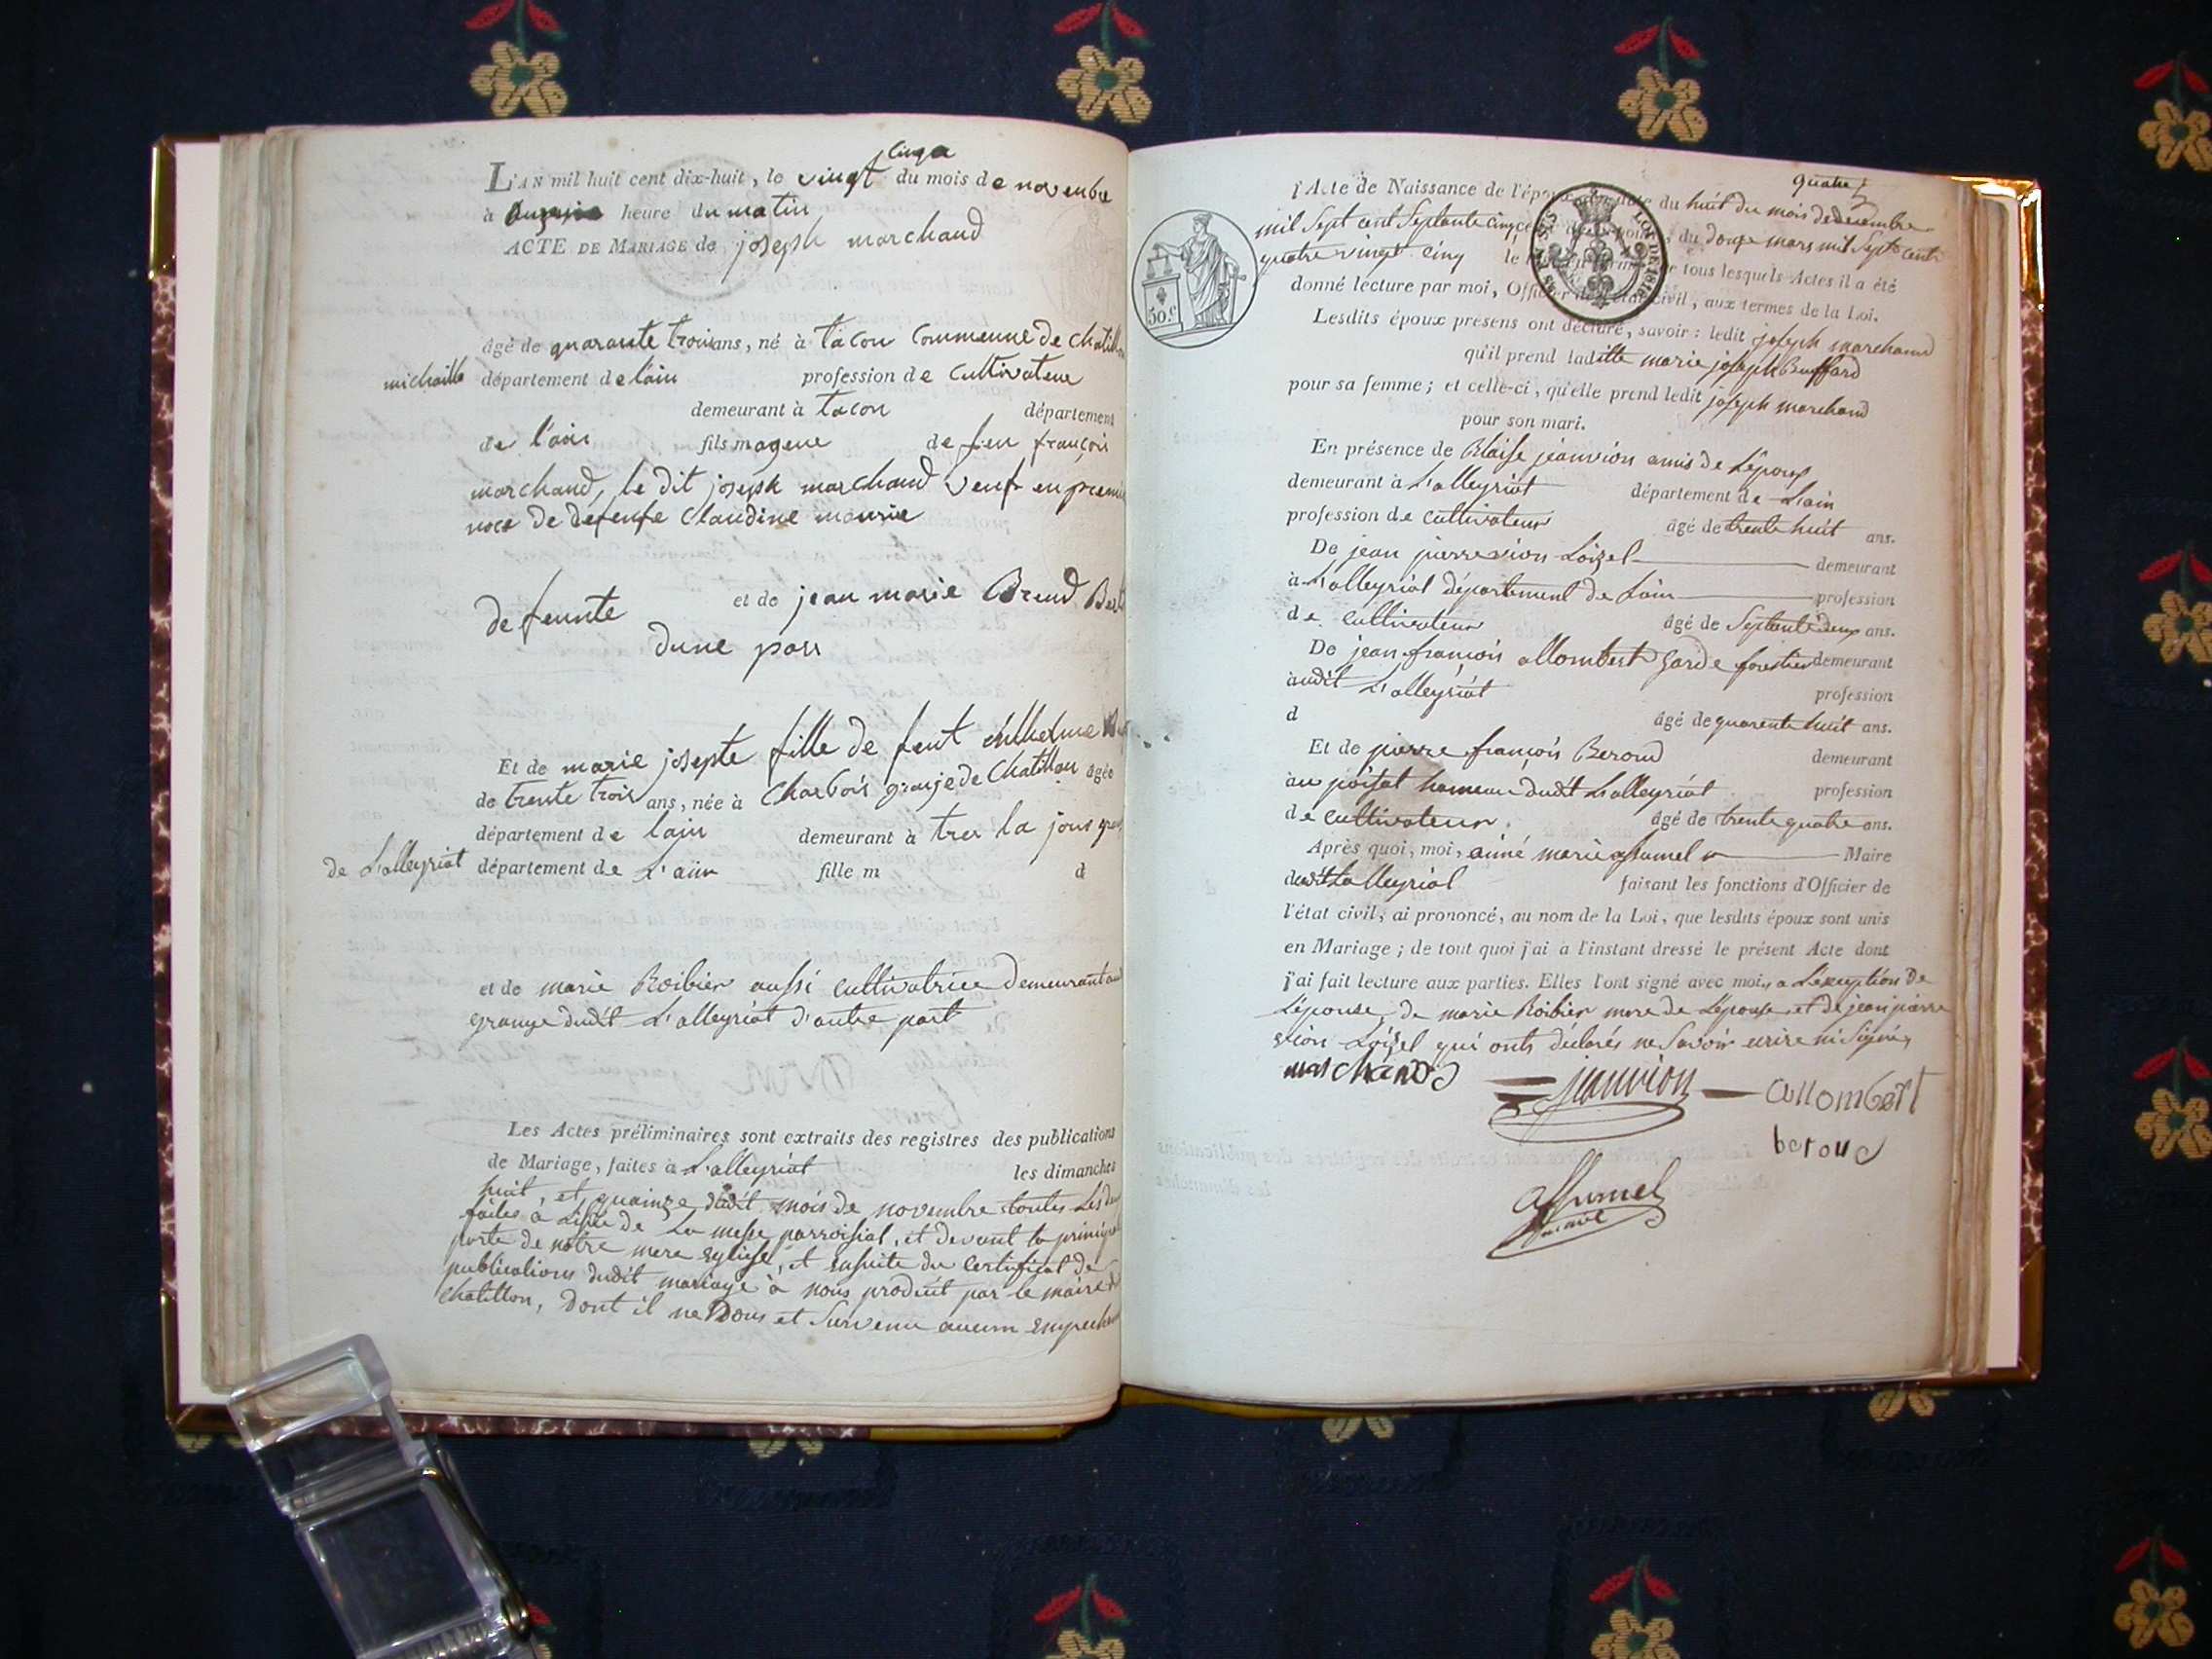 cinq
L'AN mil huit cent dix-huit, le vingt du mois de novembre
à heure du matin
ACTE DE MARIAGE de joseph marchand
âgé de quarante trois ans, né à tacon Commenne de Chatillon
michaille département de lain profession de Cultivateur
demeurant à tacon département
de l'ain fils mageur de feu françois
marchand, le dit joseph marchand veuf en premier
noce de defente Claudine mourie
defeunte et de jean marie Brend
dune part
Et de marie josepte fille de feut
de trente trois ans, née à Charbois grange de Chatillon âgée
département de lain demeurant à trer la jous
de L'alleyriat département de L'ain fille m d
et de marie Roibier aussi cultivatrice demeurant au
grange dudit L'alleyriat d'autre part
Les Actes préliminaires sont extraits des registres des publications
de Mariage, faites à L'alleyriat les dimanches
huit, et quainze dudit mois de novembre toutes Les deu
faites a L'issue de La messe parroisial, et devant la principal
porte de notre mere eglise, et ensuite du certificat de
publications dudit mariage à nous produit par le maire de
Chatillon, dont il ne Nous et Survenu aucun empeche
quatre
l'Acte de Naissance de l'époux en date du huit du mois de decembre
mil Sept cent Septante cinq du douze mars mil Sept cent
quatre vingt cinq le de tous lesquels Actes il a été
donné lecture par moi, Officier de l'état civil, aux termes de la Loi.
50 c.
LOI DE 1816
Lesdits époux présens ont déclaré, savoir: ledit joseph marchand
qu'il prend ladite marie joseph Buffard
pour sa femme; et celle-ci, qu'elle prend ledit joseph marchand
pour son mari.
En présence de Blaise jeanvion amis de L'époux
demeurant à L'alleyriat département de L'ain
profession de cultivateur âgé de trente huit ans.
De jean pierre vion Loizel demeurant
à L'alleyriat département de Lain profession
de cultivateur âgé de Septante deux ans.
De jean françois allombert garde forestier demeurant
audit L'alleyriat profession
d âgé de quarente huit ans.
Et de pierre françois Beroud demeurant
au poisat hameau dudit L'alleyriat profession
de cultivateur âgé de trente quatre ans.
Après quoi, moi, aimé marie assumel Maire
dudit Lalleyriat faisant les fonctions d'Officier de
l'état civil, ai prononcé, au nom de la Loi, que lesdits époux sont unis
en Mariage; de tout quoi j'ai à l'instant dressé le présent Acte dont
j'ai fait lecture aux parties. Elles l'ont signé avec moi, a L'exception de
L'épouse, de marie Roibier mere de L'épouse et de jean pierre
vion Loizel qui onts déclarés ne Savoir ecrire ni Signer
marchand jeanvion allombert
beroud
assumel
maire